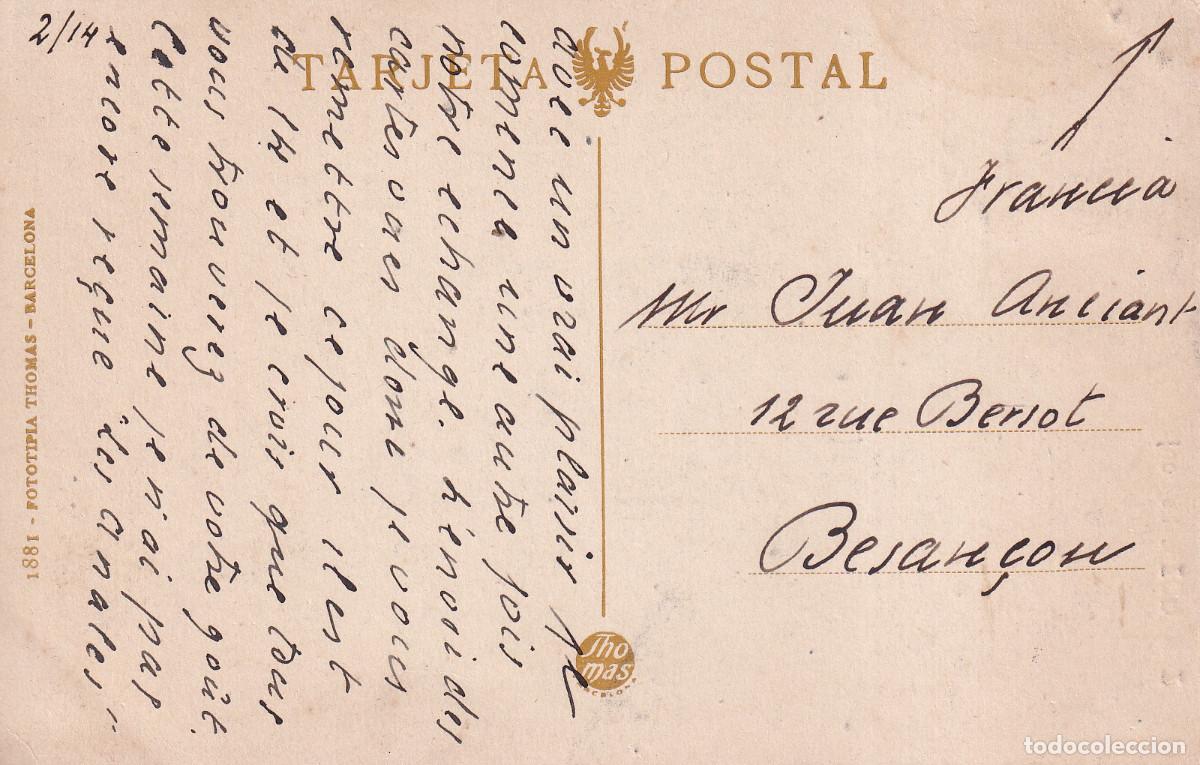 2/14
TARJETA POSTAL
avec un vrai plaisir je
comence une autre fois
notre echange. h'envoi des
cartes vues dont je vous
remettre ce jour il est
du 1k et je crois que tous
vous trouverez de votre goût.
cette semaine je n'ai pas
encore reçue "Les Anales"
Francia
Mr Juan Anciant
12 rue Bersot
Besançon
1881 - FOTOTIPIA THOMAS - BARCELONA
Thomas
BARCELONA
todocoleccion